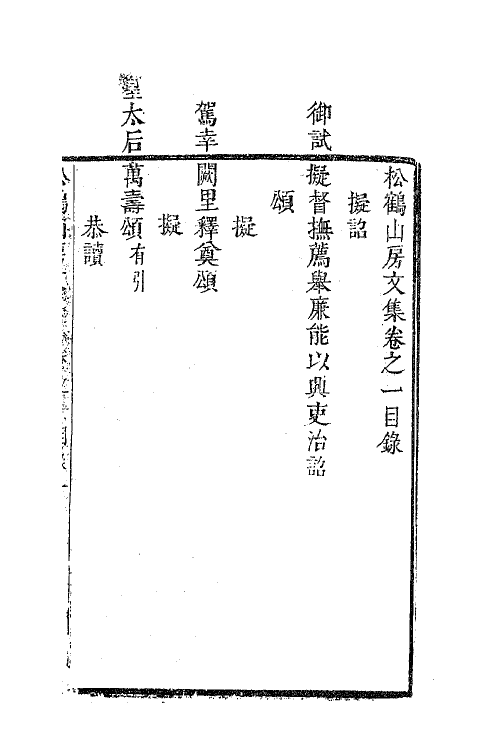 松鶴山房文集卷之一目錄
擬詔
御試擬督撫薦舉廉能以興吏治詔
頌
擬
駕幸闕里釋奠頌
擬
皇太后萬壽頌有引
恭讀